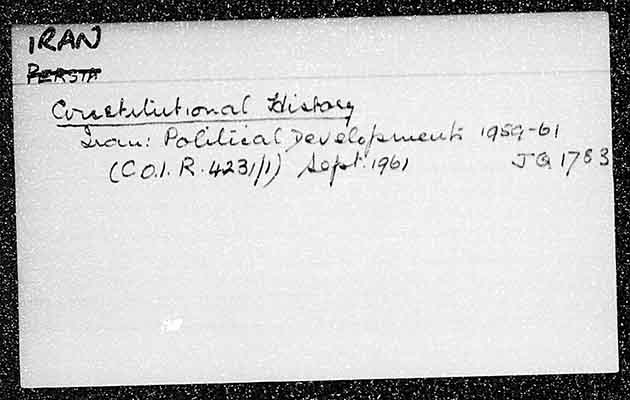 IRAN
PERSIA
Constitutional History
Iran: Political Developments 1959-61
(C.O.I. R. 4231/1) Sept. 1961 JQ 1783